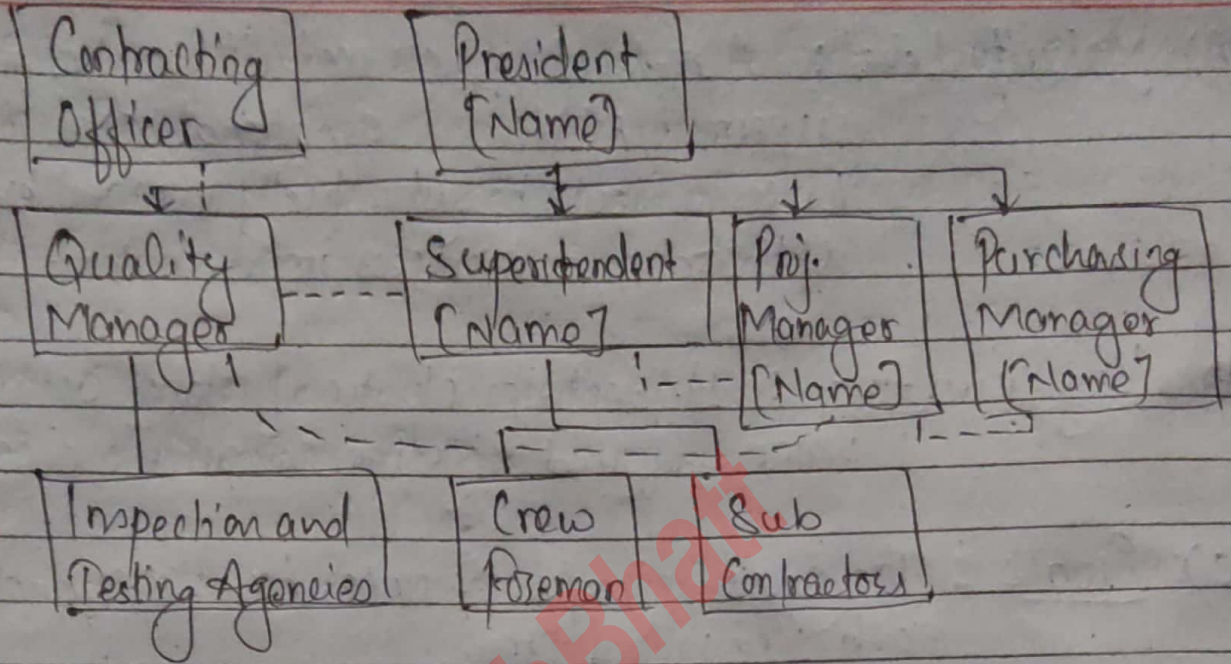 Contracting
Officer
President
[Name]
Quality
Manager
Superintendent
[Name]
Proj.
Manager
[Name]
Purchasing
Manager
[Name]
Inspection and
Testing Agencies
Crew
Foreman
Sub
Contractors
Bhatt